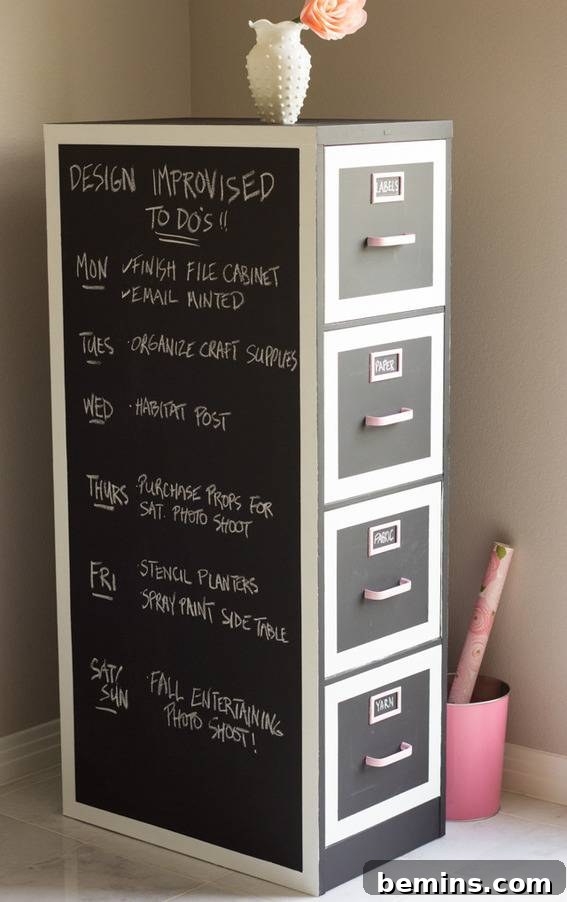 DESIGN IMPROVISED
TO DO'S!!
MON ✓FINISH FILE CABINET
✓EMAIL MINTED
TUES ·ORGANIZE CRAFT SUPPLIES
WED ·HABITAT POST
THURS ·PURCHASE PROPS FOR
SAT. PHOTO SHOOT
FRI ·STENCIL PLANTERS
·SPRAY PAINT SIDE TABLE
SAT/
SUN ·FALL ENTERTAINING
PHOTO SHOOT!
LABELS
PAPER
FABRIC
YARN
bemins.com